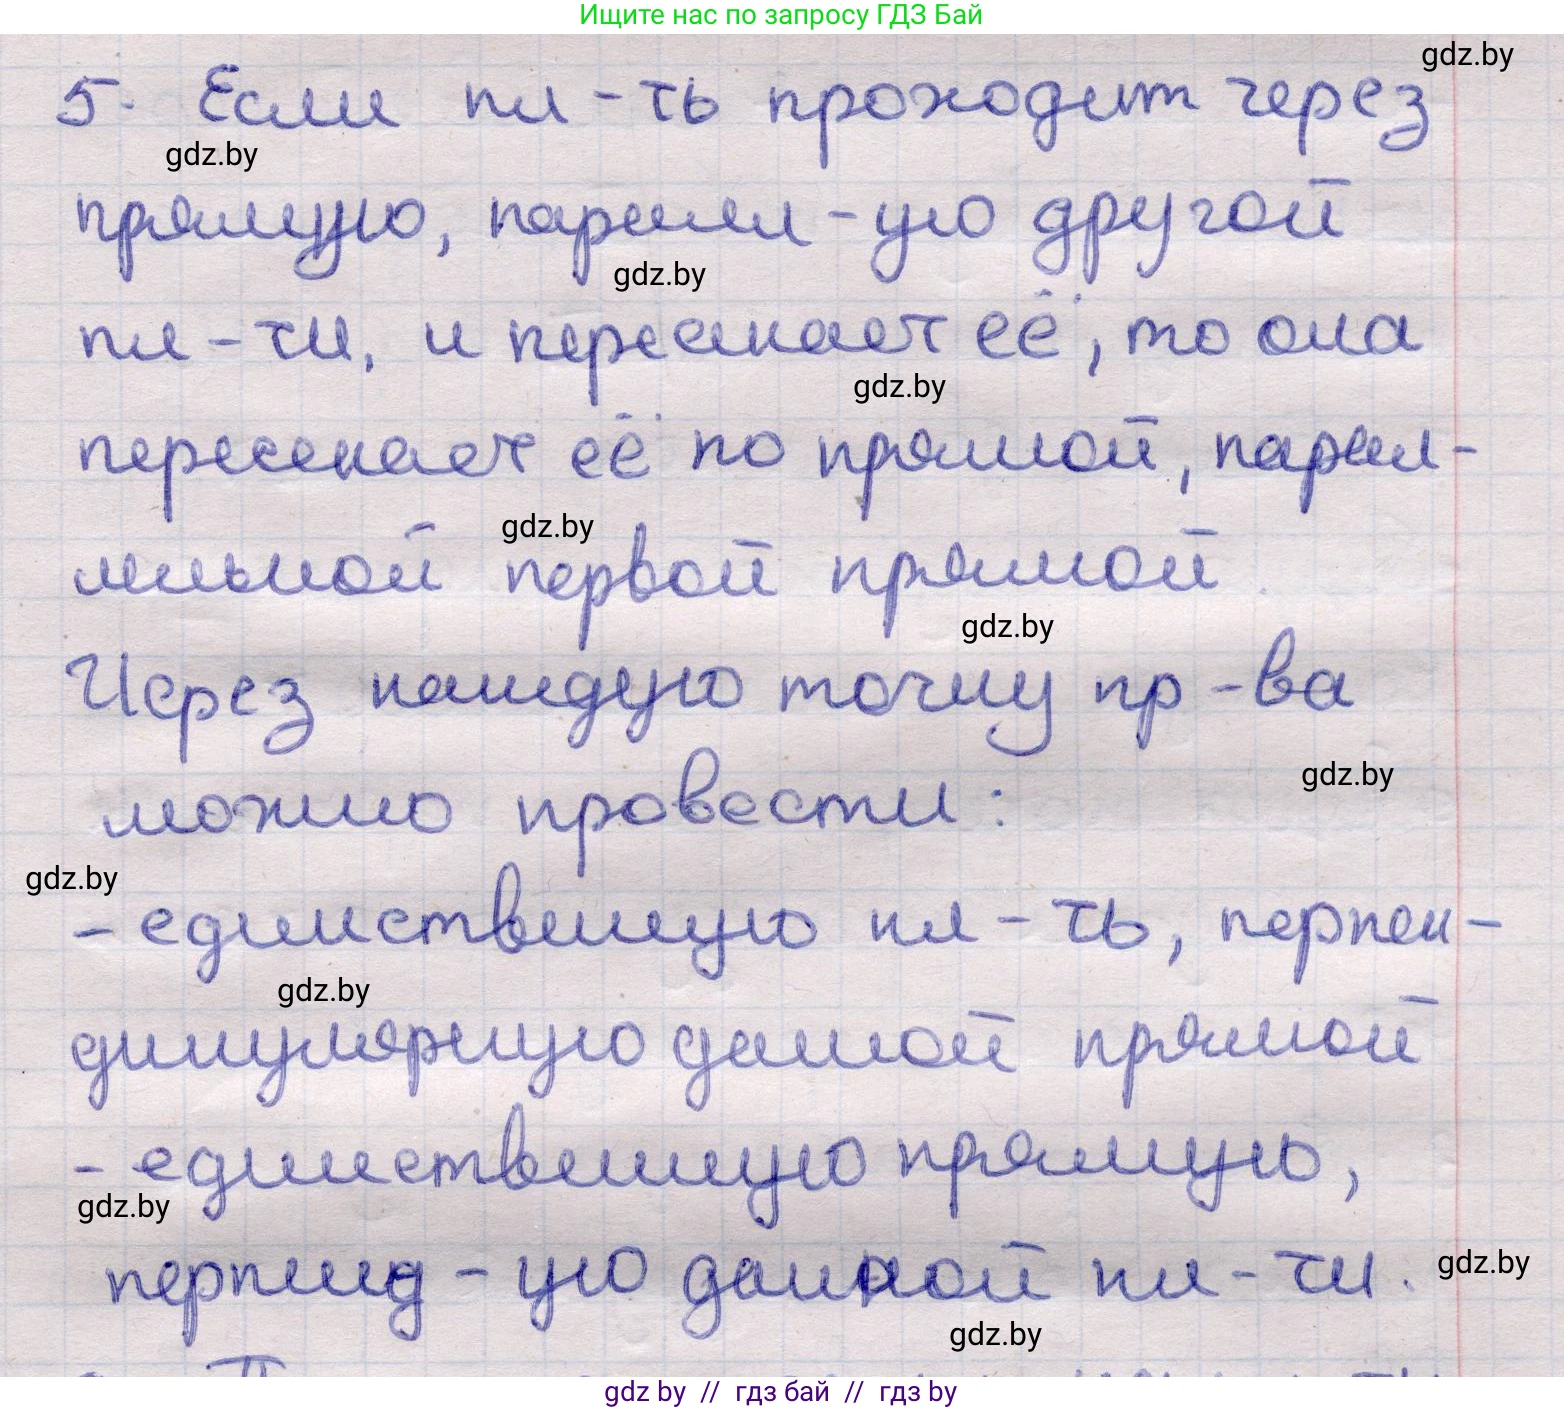 Ищите нас по запросу ГДЗ Бай
gdz.by
5. Если пл-ть проходит через
gdz.by
прямую, паралл-ую другой
gdz.by
пл-ти, и пересекает её, то она
gdz.by
пересекает её по прямой, парал-
gdz.by
лельной первой прямой.
gdz.by
Через каждую точку пр-ва
gdz.by
можно провести:
gdz.by
- единственную пл-ть, перпен-
gdz.by
дикулярную данной прямой
- единственную прямую,
gdz.by
перпенд-ую данной пл-ти.
gdz.by
gdz.by
gdz by // гдз бай // гдз by